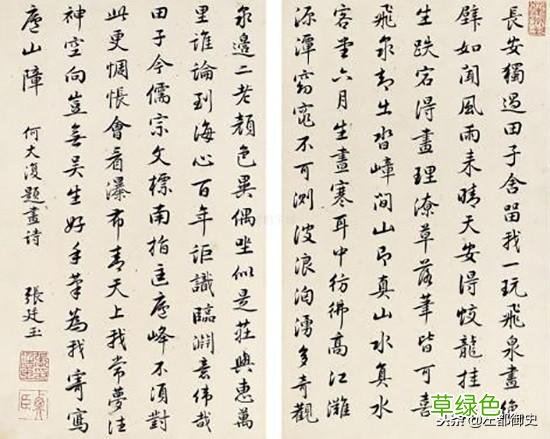 長安獨過田子舍留我一玩飛泉畫絶
壁如聞風雨来晴天安得蛟龍挂
生跌宕得畫理潦草落筆皆可喜
飛泉却出沓嶂間山即真山水真水
客堂六月生晝寒耳中彷彿高江灘
源潭窈窕不可測波浪洶湧多奇觀
泉邊二老顏色異偶坐似是莊與惠萬
里誰論到海心百年詎識臨淵意偉哉
田子今儒宗文標南指匡廬峰不須對
此更惆悵會看瀑布青天上我常夢往
神空向豈無吳生好手筆為我寄寫
廬山障 何大復題畫詩 張廷玉
草绿色
头条 @左都御史